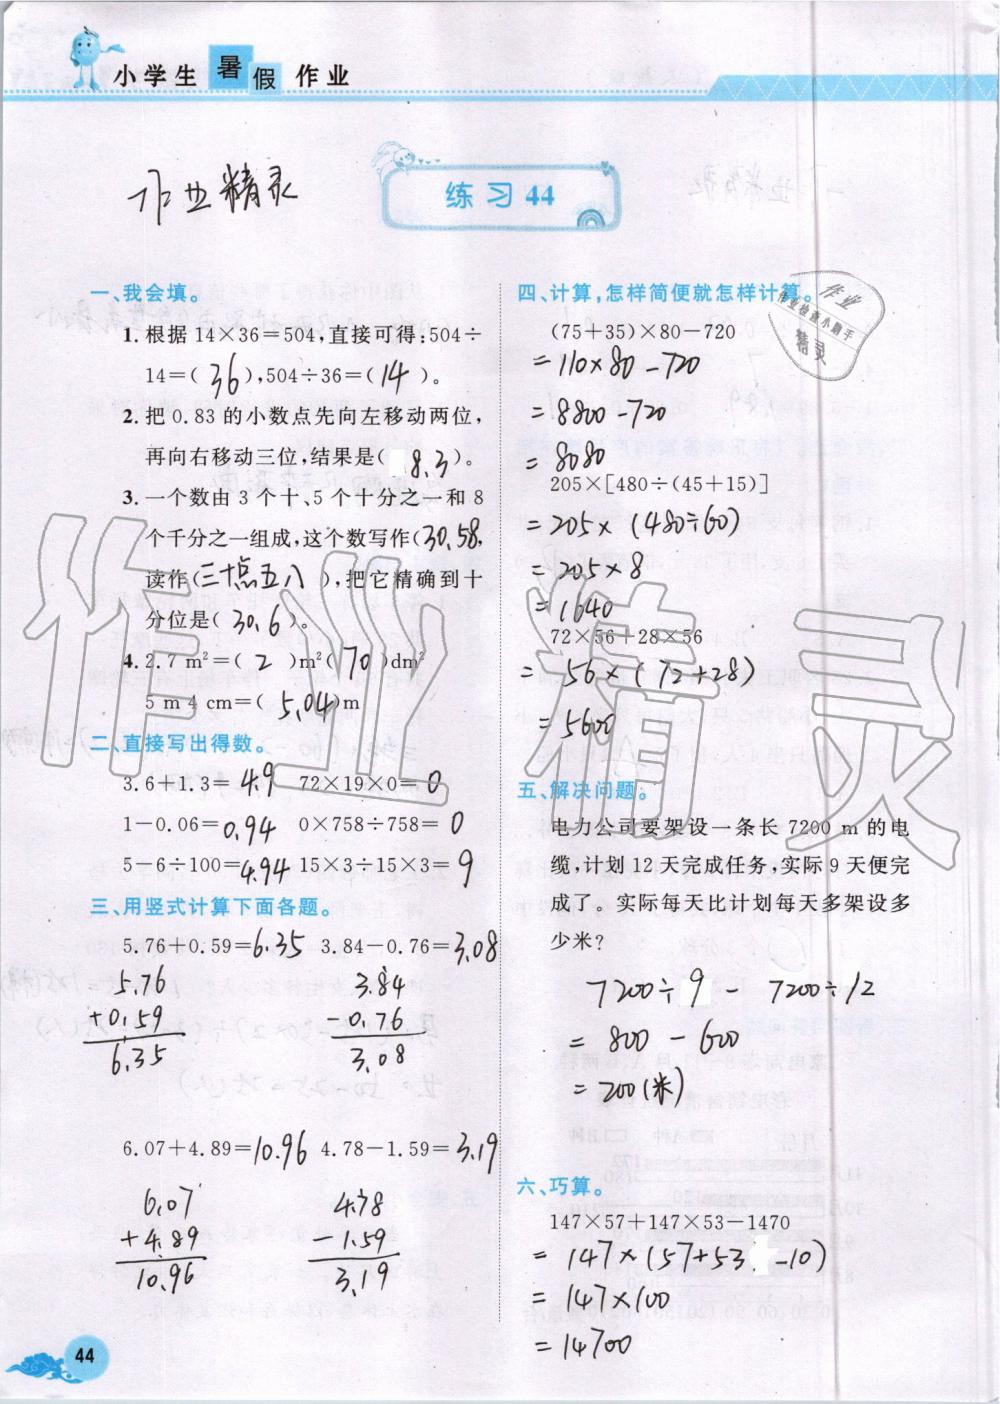 小学生暑假作业
作业精灵
练习44
一、我会填。
1. 根据14×36=504,直接可得:504÷
14=( 36 ),504÷36=( 14 )。
2. 把0.83的小数点先向左移动两位,
再向右移动三位,结果是( 8.3 )。
3. 一个数由3个十、5个十分之一和8
个千分之一组成,这个数写作(30.58,
读作(三十点五八 ),把它精确到十
分位是( 30.6 )。
4. 2.7 m²=( 2 )m²( 70 )dm²
5 m 4 cm=( 5.04 )m
二、直接写出得数。
3.6+1.3= 4.9 72×19×0= 0
1-0.06= 0.94 0×758÷758= 0
5-6÷100= 4.94 15×3÷15×3= 9
三、用竖式计算下面各题。
5.76+0.59=6.35 3.84-0.76=3.08
5.76 3.84
+0.59 -0.76
6.35 3.08
6.07+4.89=10.96 4.78-1.59=3.19
6.07 4.78
+4.89 -1.59
10.96 3.19
44
四、计算,怎样简便就怎样计算。
作业
作业检查小助手
精灵
(75+35)×80-720
=110×80-720
=8800-720
=8080
205×[480÷(45+15)]
=205×(480÷60)
=205×8
=1640
72×56+28×56
=56×(72+28)
=5600
五、解决问题。
电力公司要架设一条长7200 m的电
缆,计划12天完成任务,实际9天便完
成了。实际每天比计划每天多架设多
少米?
7200÷9-7200÷12
=800-600
=200(米)
六、巧算。
147×57+147×53-1470
=147×(57+53-10)
=147×100
=14700
作业精灵